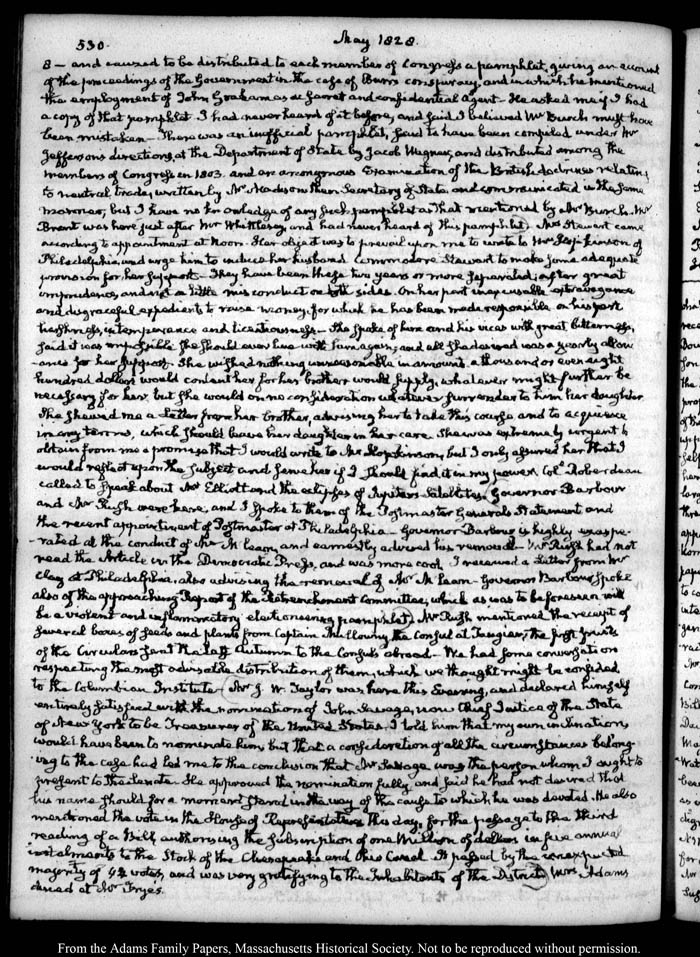 530.
May 1828.
8 — and caused to be distributed to each member of Congress a pamphlet, giving an account
of the proceedings of the Government in the case of Burr's conspiracy, and in which he mentioned
the employment of John Graham as a secret and confidential agent — He asked me if I had
a copy of that pamphlet. I had never heard of it before, and said I believed Mr Burch must have
been mistaken — There was an unofficial pamphlet, said to have been compiled under Mr
Jefferson's directions, at the Department of State by Jacob Wagner, and distributed among the
members of Congress in 1803. and an anonymous Examination of the British doctrines relating
to neutral trade, written by Mr Madison then Secretary of State and communicated in the same
manner, but I have no knowledge of any such pamphlet as that mentioned by Mr Burch. Mr
Brent was here just after Mr Whittlesey, and had never heard of this pamphlet. Mrs Stewart came
according to appointment at Noon. Her object was to prevail upon me to write to Mr Hopkinson of
Philadelphia, and urge him to induce her husband Commodore Stewart to make some adequate
provision for her support — They have been these two years or more separated; after great
imprudence, and not a little misconduct on both sides. On her part inexcusable extravagance
and disgraceful expedients to raise money, for which he has been made responsible on his part
harshness, intemperance and licentiousness — She spoke of him and his vices with great bitterness,
said it was impossible she should ever live with him again; and all she desired was a yearly allow-
-ance for her support. She wished nothing unreasonable in amount, a thousand or even eight
hundred dollars would content her, for her brother would supply, whatever might further be
necessary for her, but she would on no consideration whatever surrender to him her daughter
She shewed me a Letter from her brother, advising her to take this course and to acquiesce
in any terms, which should leave her daughter in her care. She was extremely urgent to
obtain from me a promise that I would write to Mr Hopkinson, but I only assured her that I
would reflect upon the subject and serve her if I should find it in my power. Col. Roberdeau
called to speak about Mr Elliott and the eclipses of Jupiter's Satellites. Governor Barbour
and Mr Rush were here, and I spoke to them of the Postmaster General's Statement and
the recent appointment of Postmaster at Philadelphia — Governor Barbour is highly exaspe-
-rated at the conduct of Mr McLean, and earnestly advised his removal — Mr Rush had not
read the Article in the Democratic Press, and was more cool. I received a Letter from Mr
Clay at Philadelphia, also advising the removal of Mr McLean — Governor Barbour spoke
also of the approaching Report of the Retrenchment Committee, which as was to be foreseen will
be a violent and inflammatory electioneering pamphlet. Mr Rush mentioned the receipt of
several boxes of seeds and plants from Captain Mullowny the Consul at Tangier, the first fruits
of the Circulars sent the last Autumn to the Consuls abroad — We had some conversation
respecting the most advisable distribution of them, which we thought might be confided
to the Columbian Institute — Mr J. W. Taylor was here this Evening, and declared himself
entirely satisfied with the nomination of John Savage, now Chief Justice of the State
of New York to be Treasurer of the United States. I told him that my own inclination,
would have been to nominate him, but that a consideration of all the circumstances belong-
-ing to the case had led me to the conclusion that Mr Savage was the person whom I ought to
present to the Senate. He approved the nomination fully and said he had not desired that
his name should for a moment stand in the way of the cause to which he was devoted. He also
mentioned the vote in the House of Representatives this day, for the passage to the third
reading of a Bill authorising the subscription of one Million of dollars in five annual
instalments to the Stock of the Chesapeake and Ohio Canal. It passed by the unexpected
majority of votes, and was very gratifying to the Inhabitants of the District. Mrs Adams
dined at Mr Frye's.
From the Adams Family Papers, Massachusetts Historical Society. Not to be reproduced without permission.